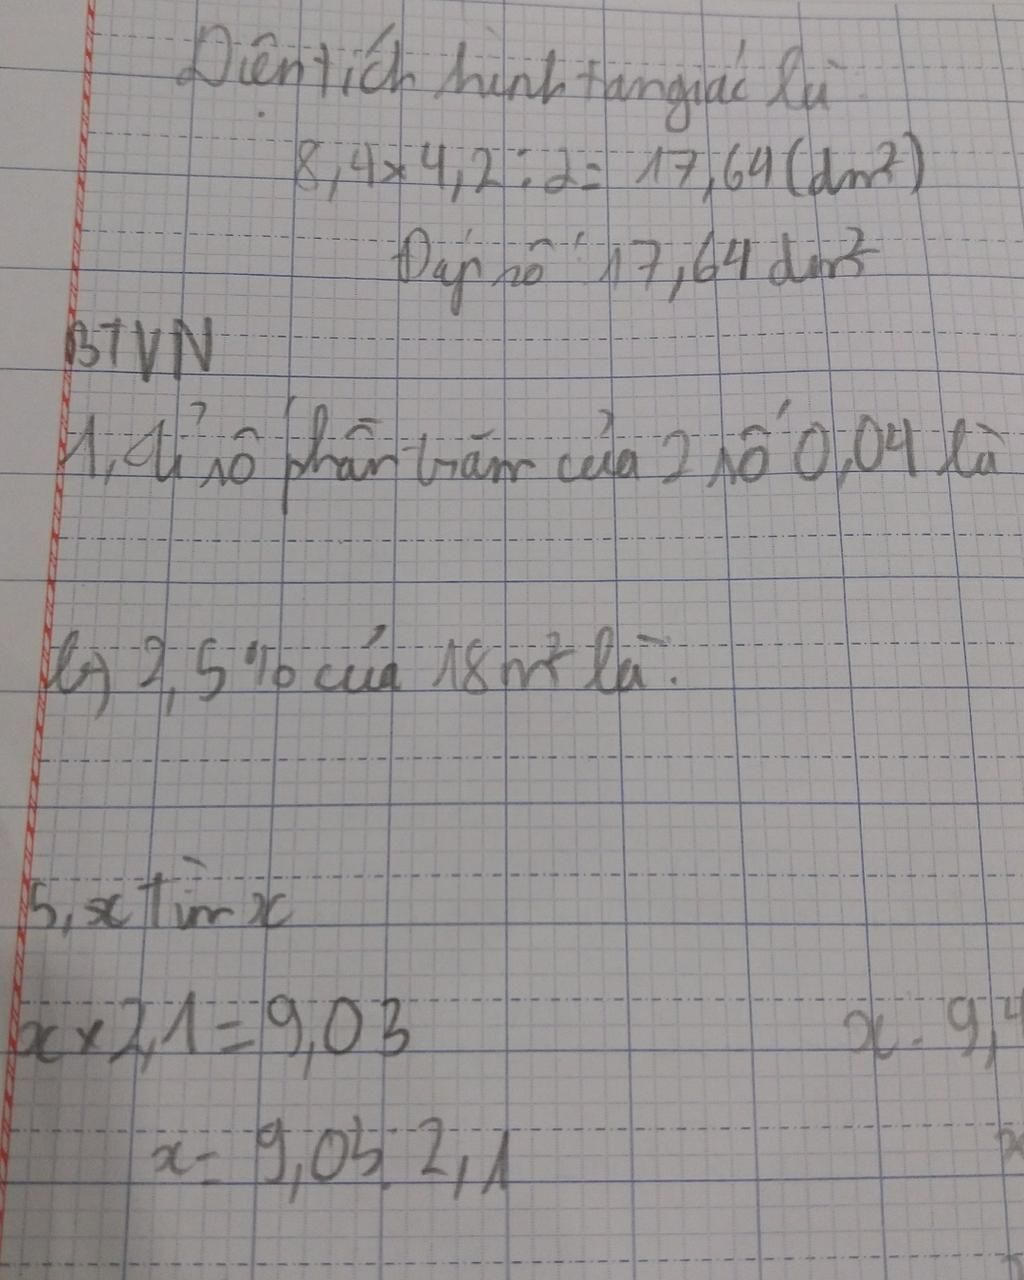 Diện tích hình tam giác là
8,4 x 4,2 : 2 = 17,64 (dm²)
Đáp số : 17,64 dm²
BTVN
1, a, Tỉ số phần trăm của 2 số 0,04 là
b) 2,5 % của 18 m² là :
5, x Tìm x
x x 2,1 = 9,03
x - 9,4
x = 9,03 : 2,1